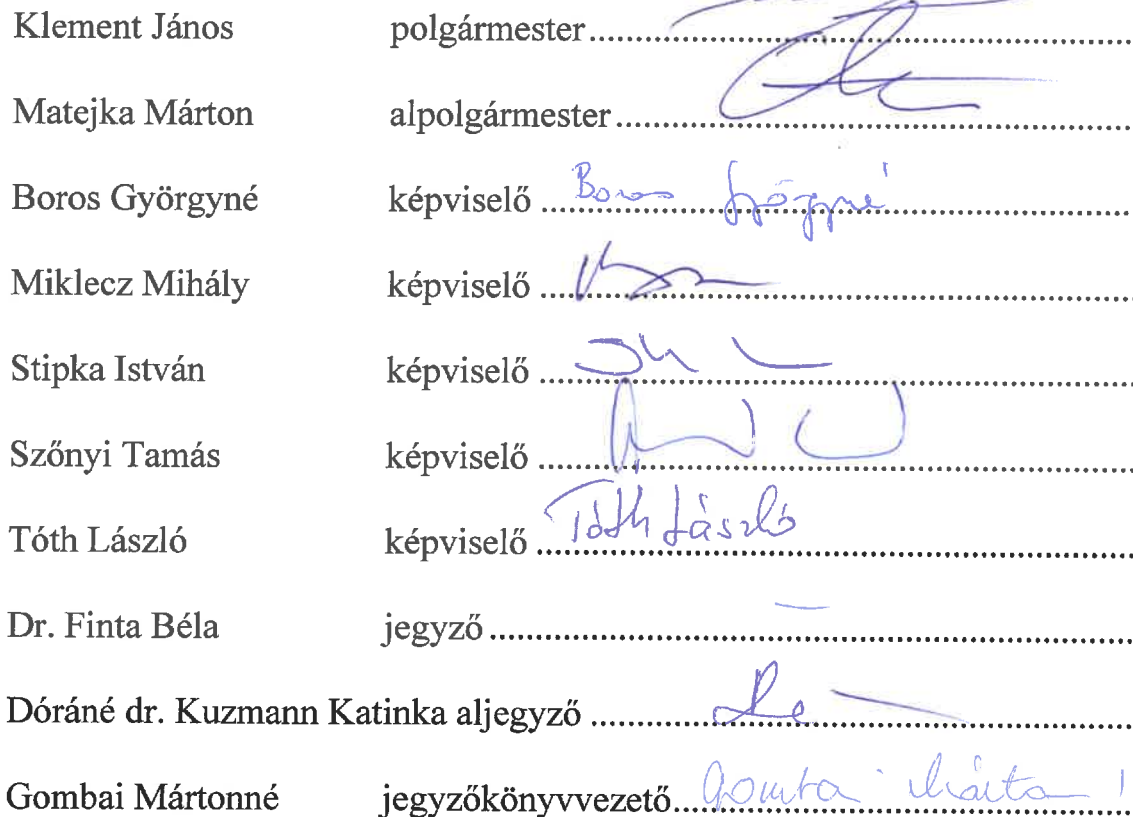 Klement János polgármester
Matejka Márton alpolgármester
Boros Györgyné képviselő Boros Györgyné
Miklecz Mihály képviselő
Stipka István képviselő
Szőnyi Tamás képviselő
Tóth László képviselő Tóth László
Dr. Finta Béla jegyző
Dóráné dr. Kuzmann Katinka aljegyző
Gombai Mártonné jegyzőkönyvvezető